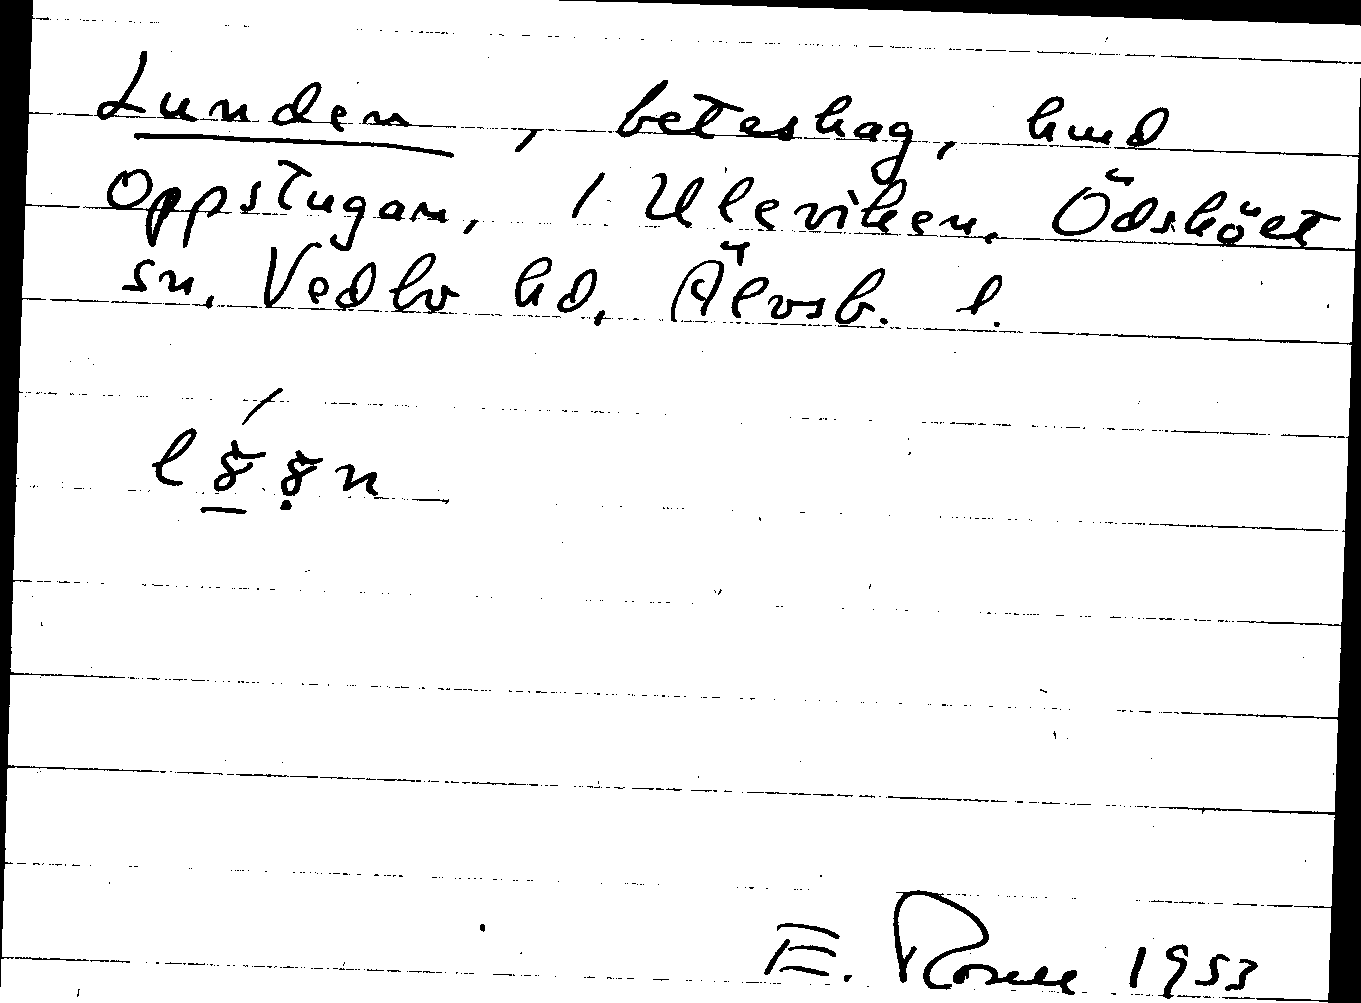 Lunden, beteshag, hmd
Oppstugan, 1 Uleviken, Ödsköelt
sn. Vedbo hd, Älvsb. l.
E. Rosell 1953